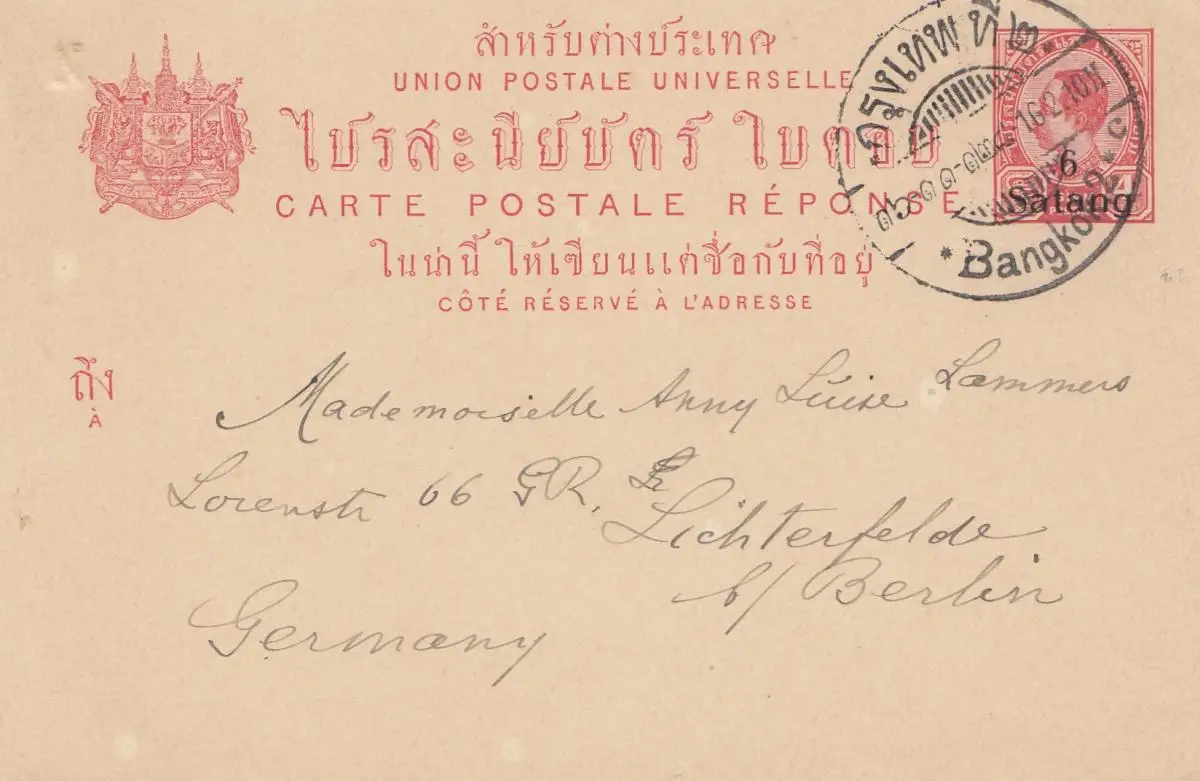 สำหรับต่างประเทศ
UNION POSTALE UNIVERSELLE
ไปรสะนียบัตร์ ใบตอบ
CARTE POSTALE RÉPONSE
ในน่านี้ ให้เขียนแต่ชื่อกับที่อยู่
CÔTÉ RÉSERVÉ À L'ADRESSE
กรุงเทพ ที่ ๒
16.2.10
Bangkok 2
6
Satang
ถึง
À
Mademoiselle Anny Luise Lammers
Lorenstr 66 GR.
Lichterfelde
b/ Berlin
Germany